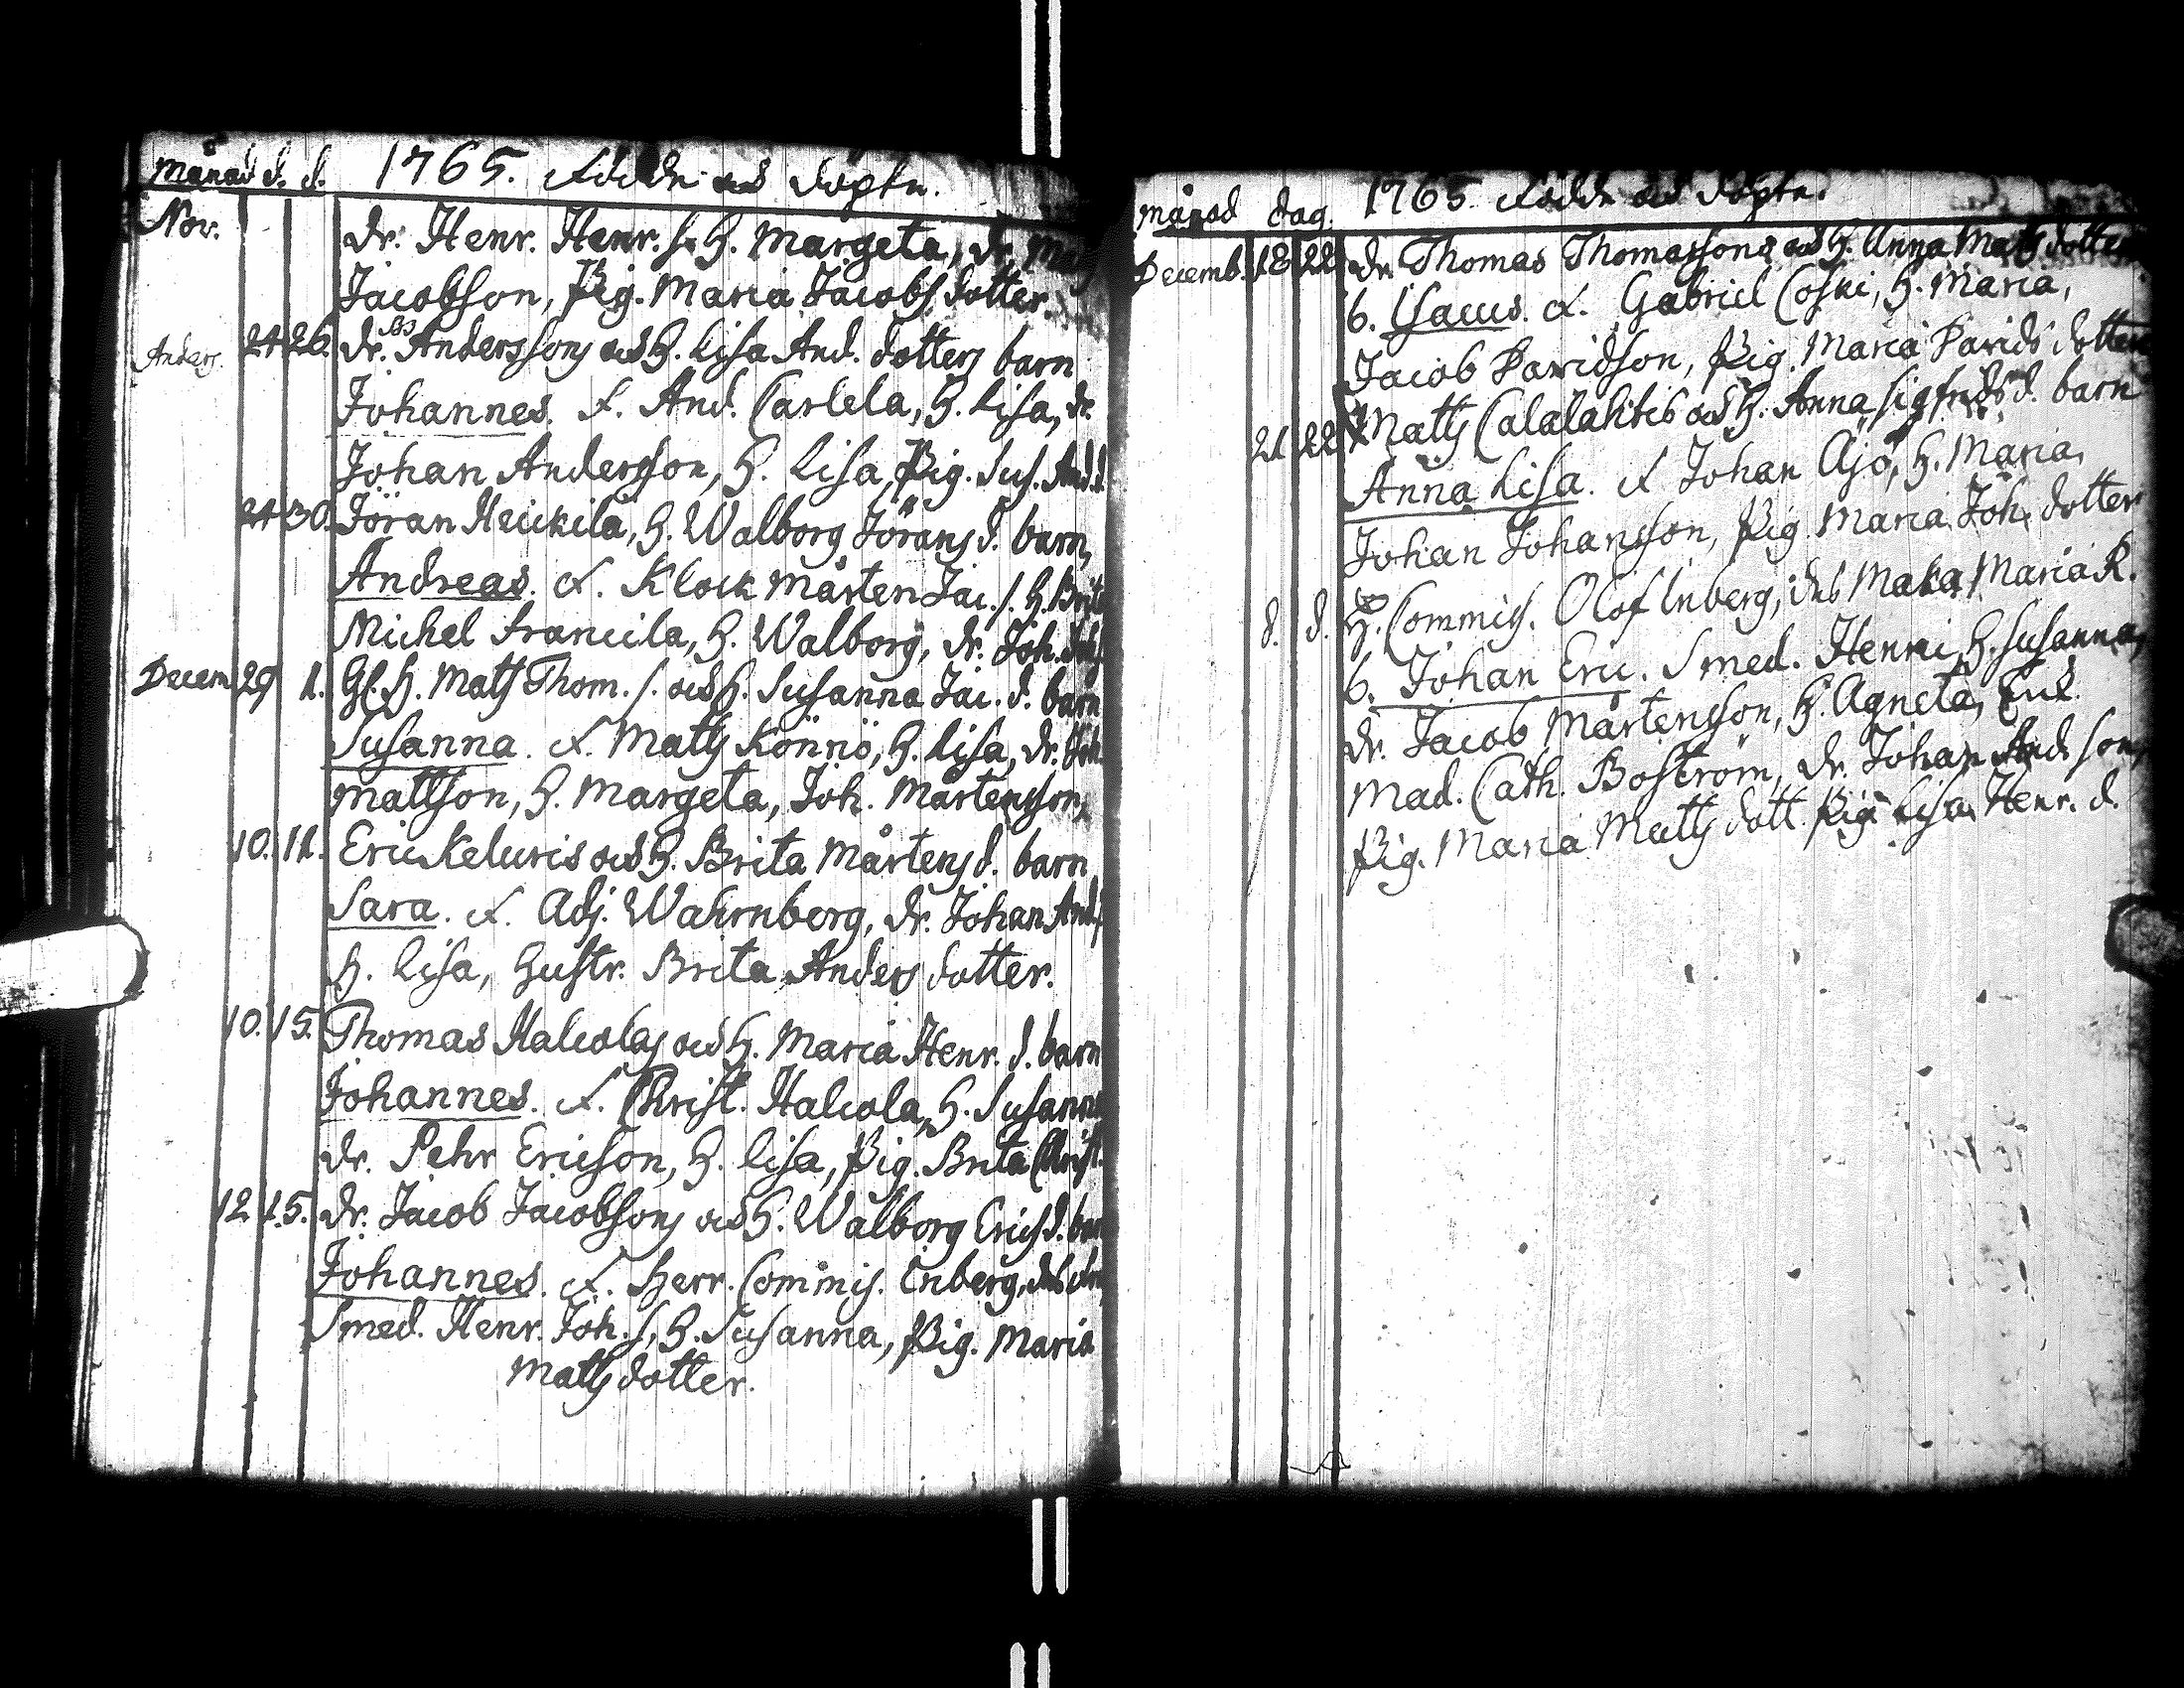 Månad d. d. 1765. Födde och döpte.
Nov. dr. Henr. Henr. s. H. Margeta, dr.
Jacobson, Pig. Maria Jacobs dotter.
Anders. 24 26. dr. Anderssons och H. Lisa And. dotters barn
Johannes. F. And. Carlela, H. Lisa, dr.
Johan Andersson, H. Lisa, Pig. Sus. And. d.
24 30. Jöran Heickilä, H. Walborg Jörans d. barn,
Andreas. F. Klock Mårten Jac. s. H. Brita
Michel Francila, H. Walborg, dr. Joh.
Decem 29 1. Gl. H. Mats Thom. s. och H. Susanna Jac. d. barn
Susanna. F. Mats Könnö, H. Lisa, dr. Joh.
Mattson, H. Margeta, Joh. Mårtensson,
10. 11. Eric Keluris och H. Brita Mårtens d. barn
Sara. F. Adj. Wahrnberg, dr. Johan And. s.
H. Lisa, Hustr. Brita Anders dotter.
10. 15. Thomas Halcolas och H. Maria Henr. d. barn
Johannes. F. Christ. Halcola, H. Susanna
dr. Pehr Ericson, H. Lisa, Pig. Brita Christ.
12 15. dr. Jacob Jacobsons och H. Walborg Erics d. barn
Johannes. F. Herr. Commis. Enberg, dess
Smed. Henr. Joh. s, H. Susanna, Pig. Maria
Mats dotter.
månad dag. 1765 Födde och döpte.
Decemb. 18 22 dr. Thomas Thomassons och H. Anna Mats dotter
b. Isacus. F. Gabriel Coski, H. Maria,
Jacob Davidson, Pig. Maria Davids dotter
21 22 Mats Calalahtis och H. Anna Sigfrids d. barn
Anna Lisa. F Johan Ajo, H. Maria,
Johan Johansson, Pig Maria Joh. dotter
d. d. H. Commis. Olof Enberg, des Maka Maria R.
b. Johan Eric. Smed. Henric, H. Susanna,
dr. Jacob Mårtensson, H. Agneta,
Mad. Cath. Boström, dr. Johan And. son,
Pig. Maria Mats dott. Pig. Lisa Henr. d.